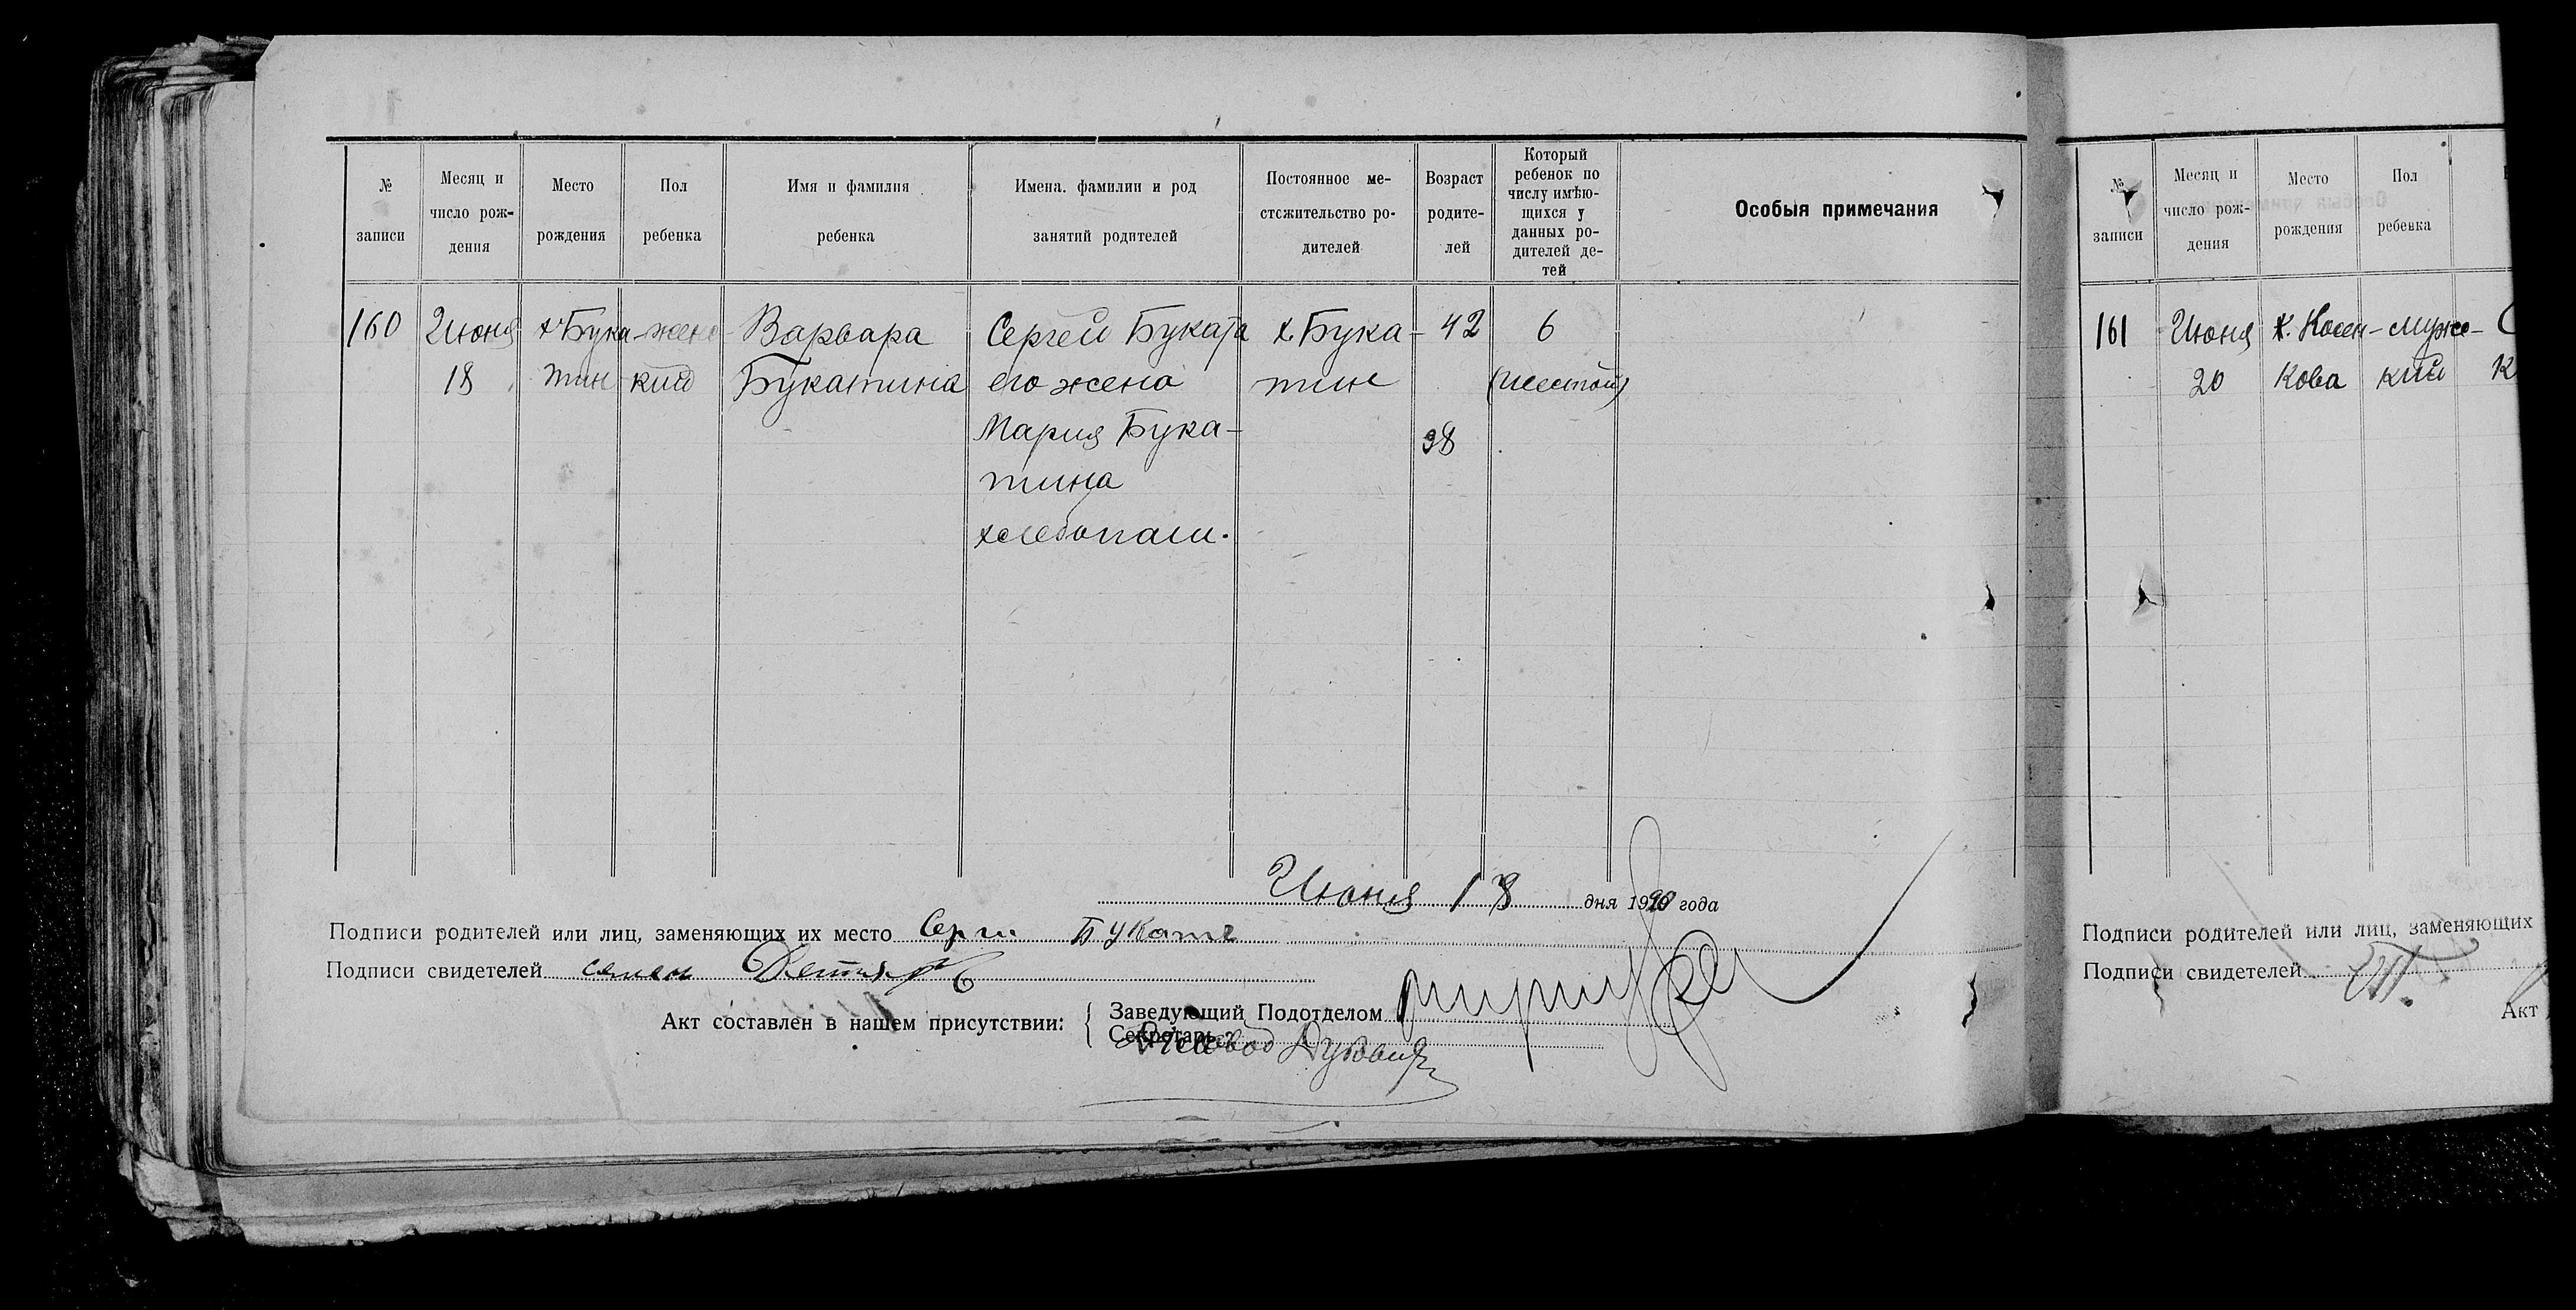 № записи
Месяц и число рож-дения
Место рождения
Пол ребенка
Имя и фамилия ребенка
Имена. фамилии и род занятий родителей
Постоянное ме-стожительство ро-дителей
Возраст родите-лей
Который ребенок по числу имѣю-щихся у данных ро-дителей де-тей
Особыя примечания
160 Июня х Бука- женс- Варвара Сергей Буката х. Бука- 42 6
18 тин кий Букатина его жена тин (шестой)
Мария Бука- 38
тина
хлебопаш.
Июня 18 дня 1920 года
Подписи родителей или лиц, заменяющих их место
Подписи свидетелей семен
Акт составлен в нашем присутствии: Заведующий Подотделом
Секретарь
№ записи
Месяц и число рож-дения
Место рождения
Пол ребенка
161 Июня х. Носен- мужс-
20 кова кий
Подписи родителей или лиц, заменяющих
Подписи свидетелей
Акт